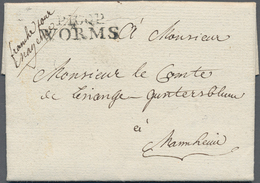 WORMS
à Monsieur
Monsieur le Comte
de Linange - Guntersblum
à
Mannheim